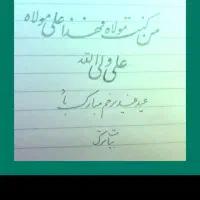 من کنت مولاه فهذا علی مولاه
علی ولی الله
عید غدیر خم مبارک باد